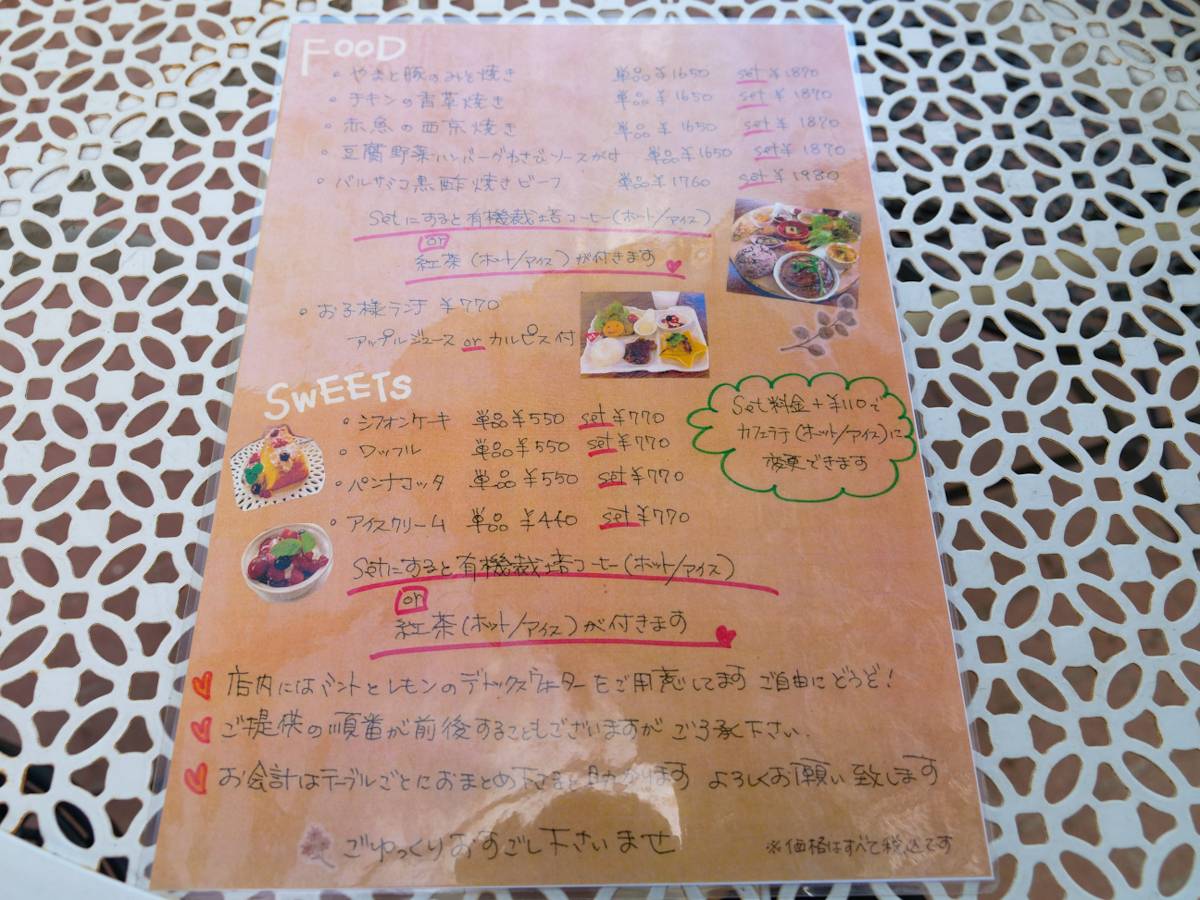 FOOD
・やまと豚のみそ焼き 単品¥1650 set¥1870
・チキンの香草焼き 単品¥1650 set¥1870
・赤魚の西京焼き 単品¥1650 set¥1870
・豆腐野菜ハンバーグわさびソースがけ 単品¥1650 set¥1870
・バルサミコ黒酢焼きビーフ 単品¥1760 set¥1980
Setにすると有機栽培コーヒー(ホット/アイス)
or
紅茶(ホット/アイス)が付きます
・お子様ランチ ¥770
アップルジュース or カルピス付
SWEETS
・シフォンケーキ 単品¥550 set¥770
・ワッフル 単品¥550 set¥770
・パンナコッタ 単品¥550 set¥770
・アイスクリーム 単品¥440 set¥770
Set料金+¥110で
カフェラテ(ホット/アイス)に
変更できます
Setにすると有機栽培コーヒー(ホット/アイス)
or
紅茶(ホット/アイス)が付きます
店内にはミントとレモンのデトックスウォーターをご用意してます ご自由にどうぞ!
ご提供の順番が前後することもございますが ご了承下さい.
お会計はテーブルごとにおまとめ下さると助かります よろしくお願い致します
ごゆっくりおすごし下さいませ
※価格はすべて税込です